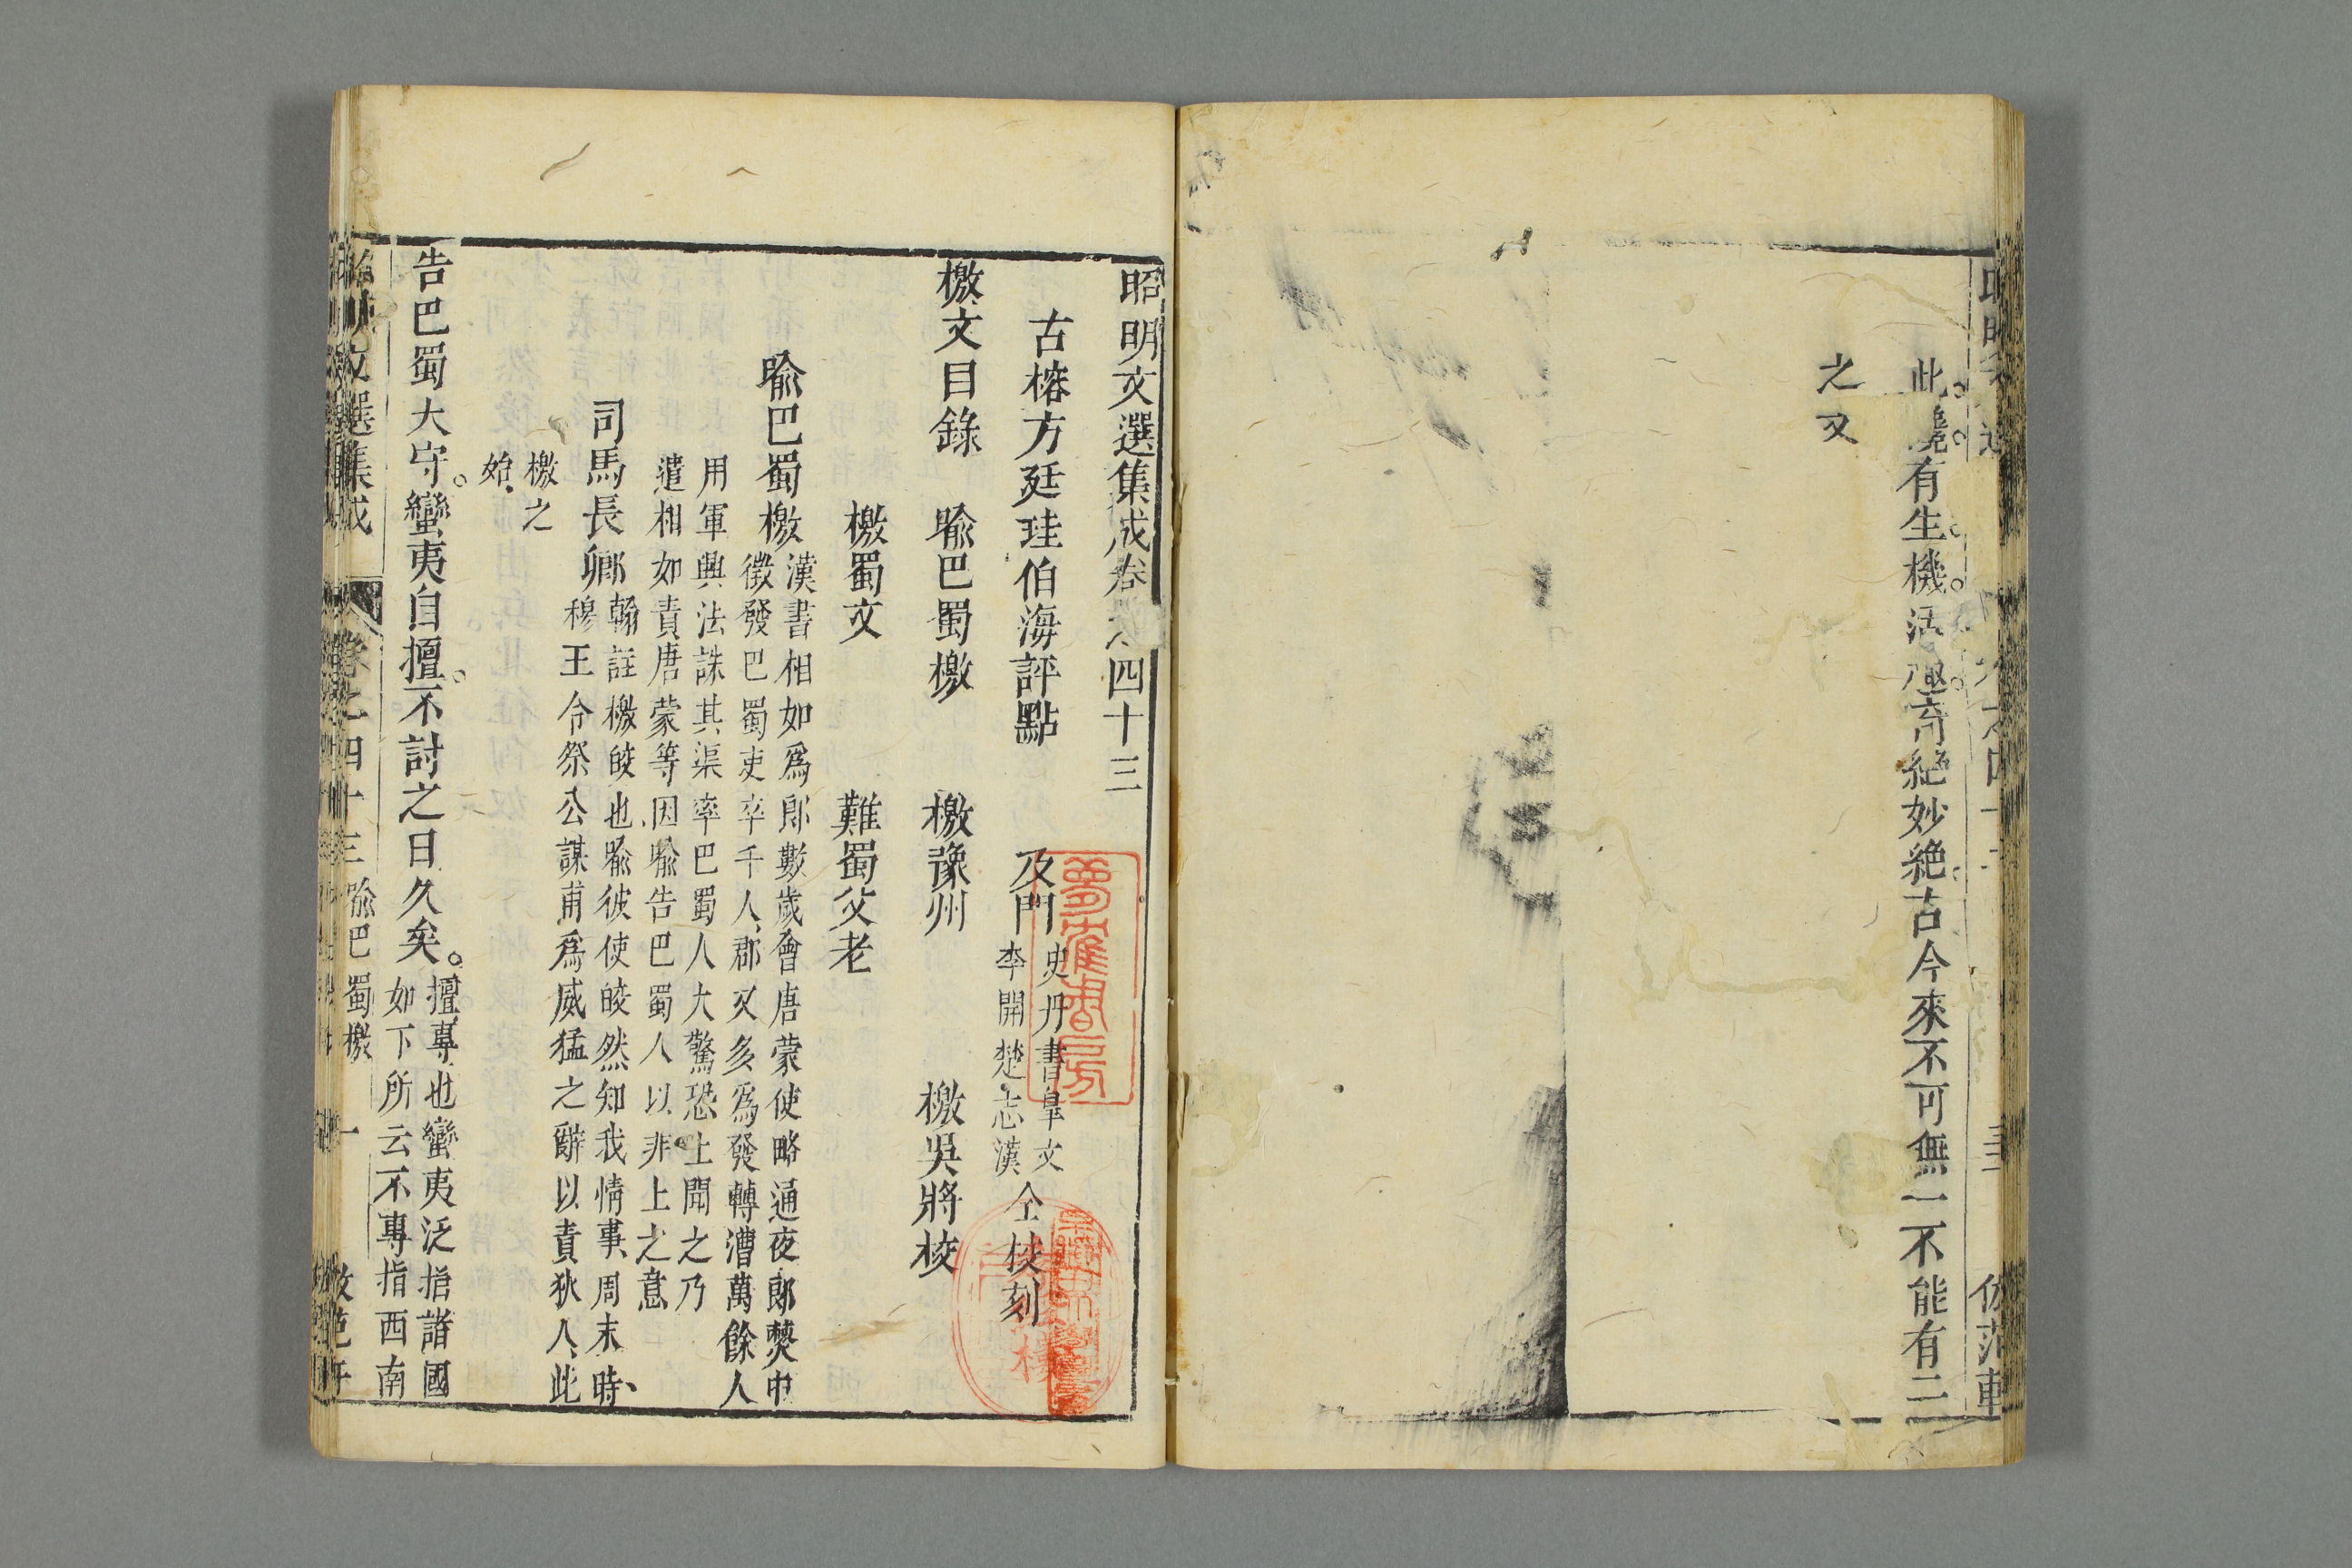 此纔有生機活趣奇絕妙絕古今來不可無一不能有二
之文
昭明文選集成卷之四十三
古榕方廷珪伯海評點
及門
史丹書臯文
李開楚志漢
仝校刻
檄文目錄
喻巴蜀檄
檄豫州
檄吳將校
檄蜀文
難蜀父老
喻巴蜀檄
漢書相如爲郎數歲會唐蒙使略通夜郎僰中
徵發巴蜀吏卒千人郡又多爲發轉漕萬餘人
用軍興法誅其渠率巴蜀人大驚恐上聞之乃
遣相如責唐蒙等因喻告巴蜀人以非上之意
司馬長卿
翰註檄皎也喻彼使皎然知我情事周末時
穆王令祭公謀甫爲威猛之辭以責狄人此
檄之
始
告巴蜀大守。蠻夷自擅。不討之日久矣。
擅專也蠻夷泛指諸國
如下所云不專指西南
昭明文選集成
卷之四十三
喻巴蜀檄
一